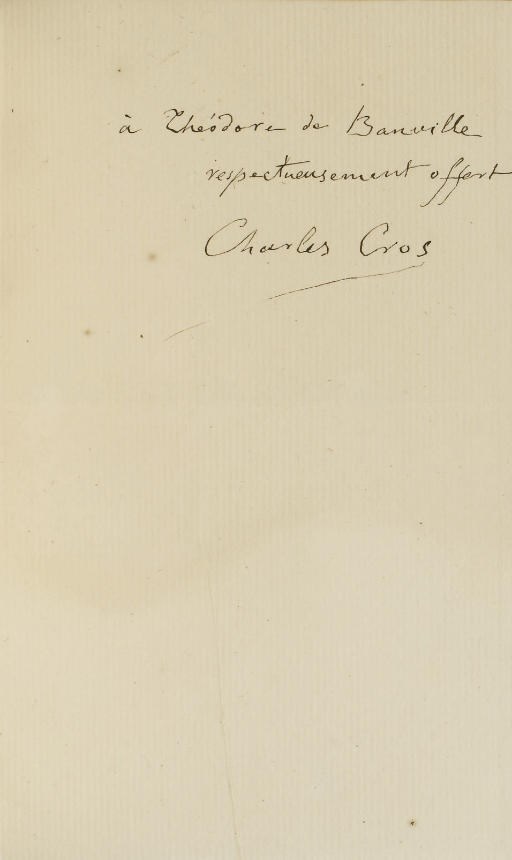 à Théodore de Banville
respectueusement offert
Charles Cros